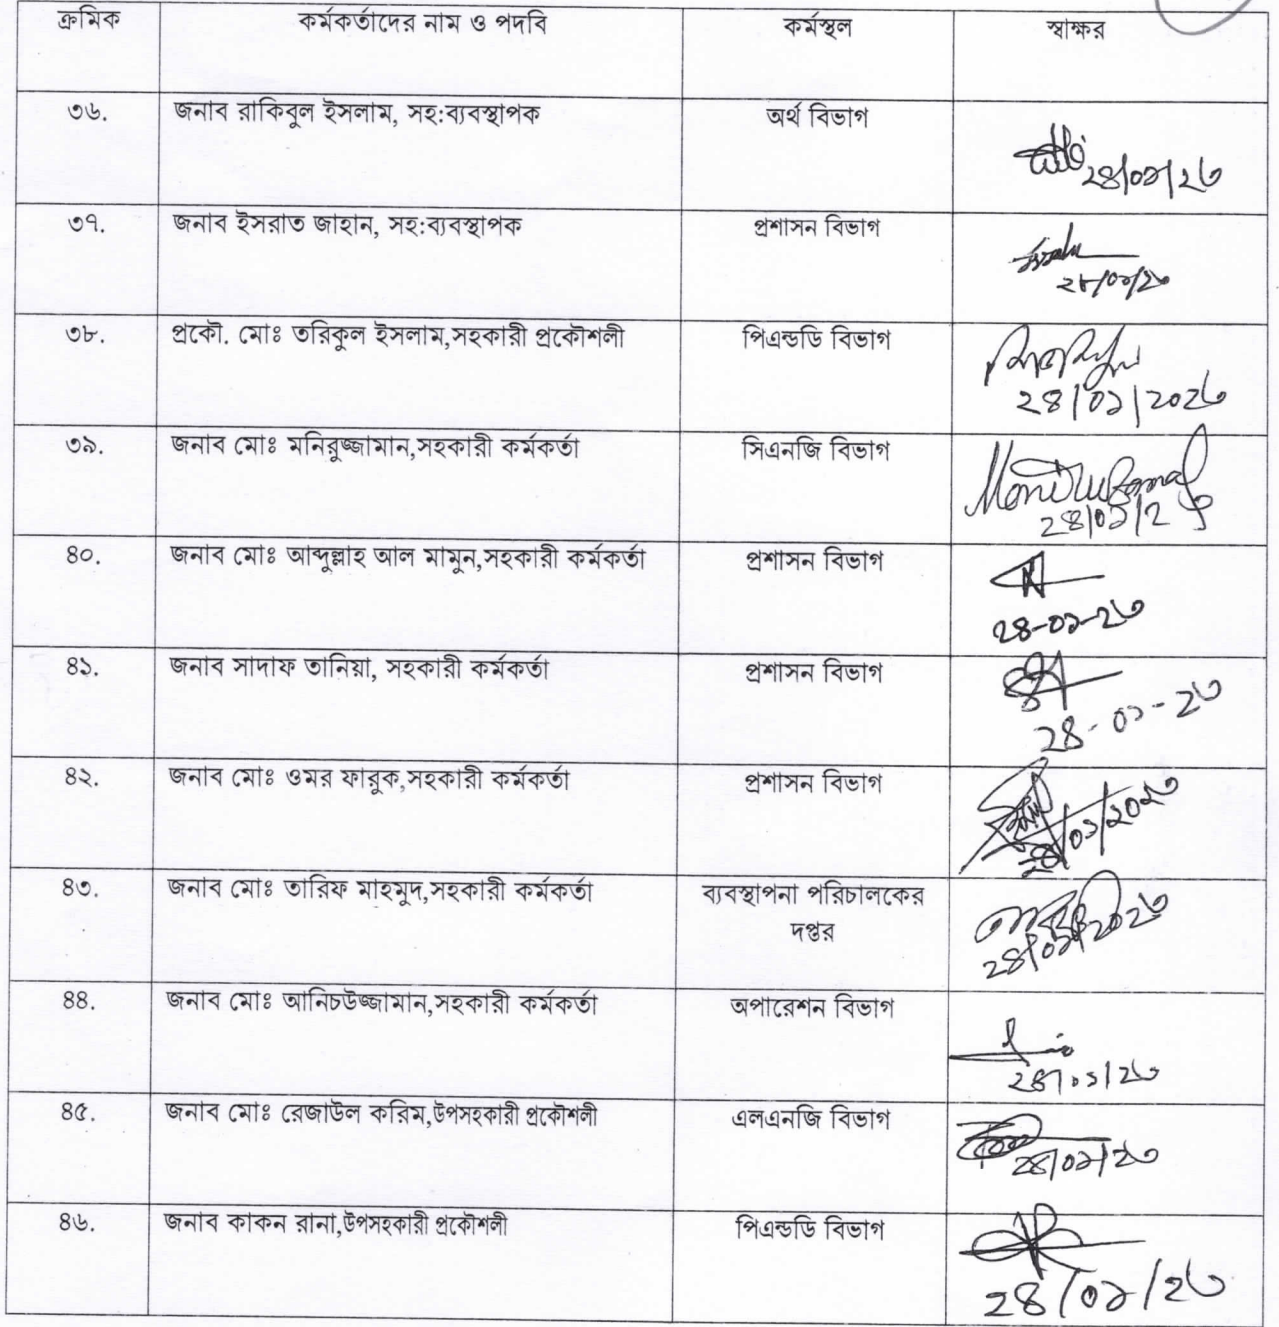 ক্রমিক কর্মকর্তাদের নাম ও পদবি কর্মস্থল স্বাক্ষর
৩৬. জনাব রাকিবুল ইসলাম, সহ:ব্যবস্থাপক অর্থ বিভাগ
২৪/০১/২৬
৩৭. জনাব ইসরাত জাহান, সহ:ব্যবস্থাপক প্রশাসন বিভাগ
৩৮. প্রকৌ. মোঃ তরিকুল ইসলাম,সহকারী প্রকৌশলী পিএন্ডডি বিভাগ
২৪/০১/২০২৬
৩৯. জনাব মোঃ মনিরুজ্জামান,সহকারী কর্মকর্তা সিএনজি বিভাগ
৪০. জনাব মোঃ আব্দুল্লাহ আল মামুন,সহকারী কর্মকর্তা প্রশাসন বিভাগ
২৪-০১-২৬
৪১. জনাব সাদাফ তানিয়া, সহকারী কর্মকর্তা প্রশাসন বিভাগ
২৪-০১-২৬
৪২. জনাব মোঃ ওমর ফারুক,সহকারী কর্মকর্তা প্রশাসন বিভাগ
৪৩. জনাব মোঃ তারিফ মাহমুদ,সহকারী কর্মকর্তা ব্যবস্থাপনা পরিচালকের
দপ্তর
৪৪. জনাব মোঃ আনিচউজ্জামান,সহকারী কর্মকর্তা অপারেশন বিভাগ
২৪/০১/২৬
৪৫. জনাব মোঃ রেজাউল করিম,উপসহকারী প্রকৌশলী এলএনজি বিভাগ
২৪/০১/২৬
৪৬. জনাব কাকন রানা,উপসহকারী প্রকৌশলী পিএন্ডডি বিভাগ
২৪/০১/২৬